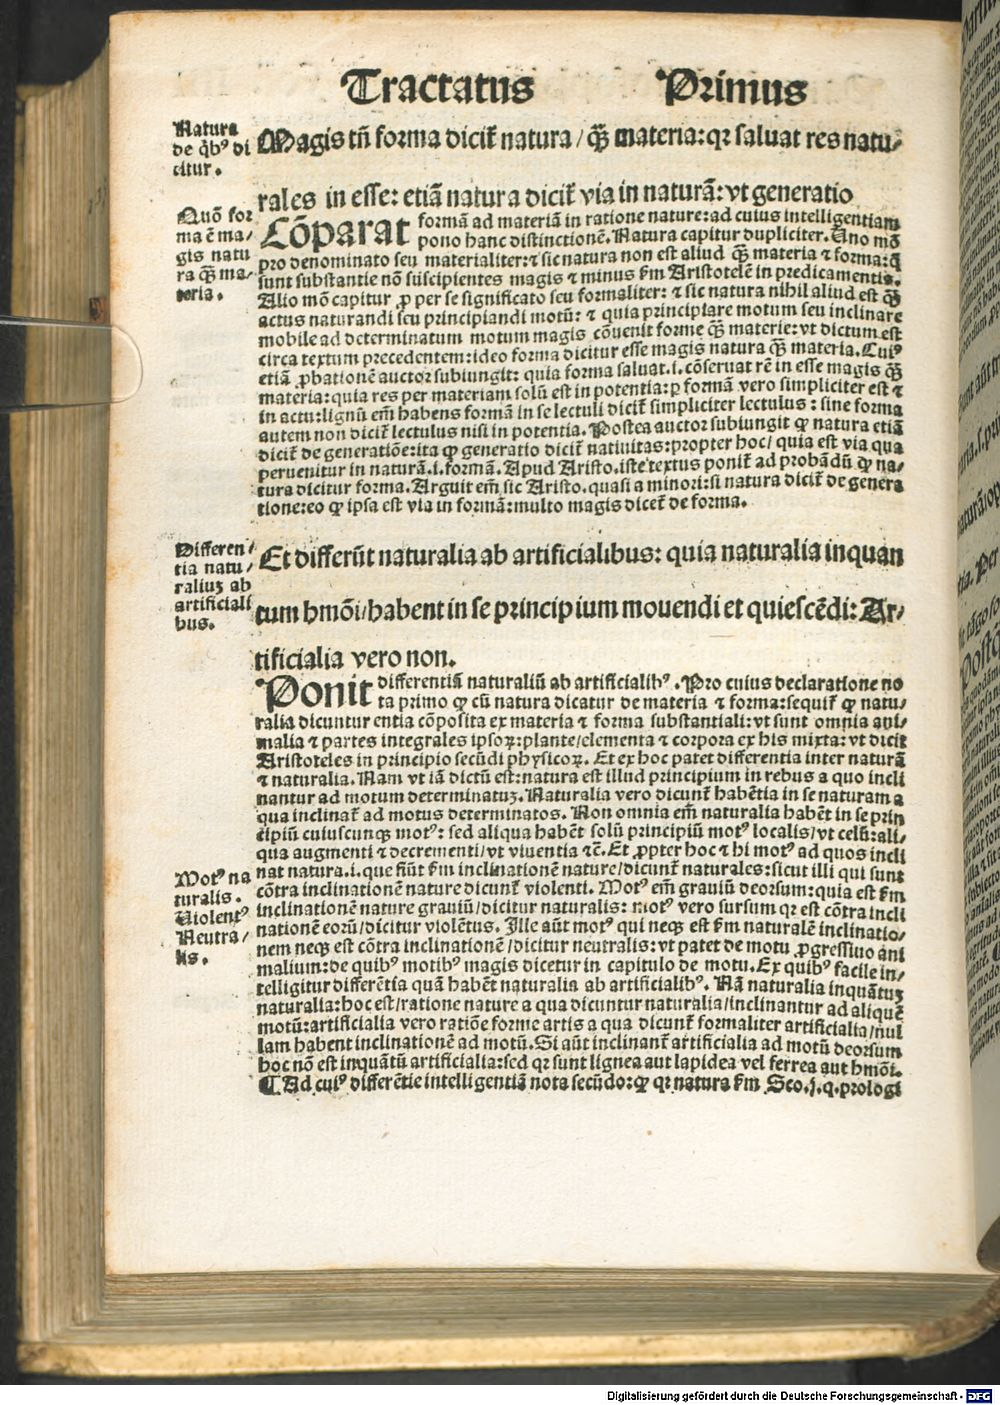 Tractatus Primus
Natura
de q̄bꝰ di
citur.
Magis tñ forma dicit̃ natura / q̄ȝ materia: qꝛ saluat res natu⸗
rales in esse: etiā natura dicit̃ via in naturā: vt generatio
Quō for
ma ē ma⸗
gis natu
ra q̄ȝ ma⸗
teria.
Cōparat formā ad materiā in ratione nature: ad cuius intelligentiam
pono hanc distinctionē. Natura capitur dupliciter. Uno mō
pro denominato seu materialiter: ⁊ sic natura non est aliud q̄ȝ materia ⁊ forma: q̄
sunt substantie nō suscipientes magis ⁊ minus ẜm Aristotelē in predicamentis.
Alio mō capitur ꝓ per se significato seu formaliter: ⁊ sic natura nihil aliud est q̄ȝ
actus naturandi seu principiandi motū: ⁊ quia principiare motum seu inclinare
mobile ad determinatum motum magis cōuenit forme q̄ȝ materie: vt dictum est
circa textum precedentem: ideo forma dicitur esse magis natura q̄ȝ materia. Cuiꝰ
etiā ꝓbationē auctor subiungit: quia forma saluat .i. cōseruat rē in esse magis q̄ȝ
materia: quia res per materiam solū est in potentia: ꝑ formā vero simpliciter est ⁊
in actu: lignū em̄ habens formā in se lectuli dicit̃ simpliciter lectulus: sine forma
autem non dicit̃ lectulus nisi in potentia. Postea auctor subiungit ꝙ natura etiā
dicit̃ de generatiōe: ita ꝙ generatio dicit̃ natiuitas: propter hoc / quia est via qua
peruenitur in naturā .i. formā. Apud Aristo. iste textus ponit̃ ad probādū ꝙ na⸗
tura dicitur forma. Arguit em̄ sic Aristo. quasi a minori: si natura dicit̃ de genera
tione: eo ꝙ ipsa est via in formā: multo magis dicet̃ de forma.
Differen⸗
tia natu⸗
raliuȝ ab
artificiali
bus.
Et differūt naturalia ab artificialibus: quia naturalia inquan
tum hmōi / habent in se principium mouendi et quiescēdi: Ar⸗
tificialia vero non.
Ponit differentiā naturaliū ab artificialibꝰ. Pro cuius declaratione no
ta primo ꝙ cū natura dicatur de materia ⁊ forma: sequit̃ ꝙ natu⸗
ralia dicuntur entia cōposita ex materia ⁊ forma substantiali: vt sunt omnia ani⸗
malia ⁊ partes integrales ipsoꝝ: plante / elementa ⁊ corpora ex his mixta: vt dicit
Aristoteles in principio secūdi physicoꝝ. Et ex hoc patet differentia inter naturā
⁊ naturalia. Nam vt iā dictū est: natura est illud principium in rebus a quo incli
nantur ad motum determinatuȝ. Naturalia vero dicunt̃ habētia in se naturam a
qua inclinat̃ ad motus determinatos. Non omnia em̄ naturalia habēt in se prin
cipiū cuiuscunqȝ motꝰ: sed aliqua habēt solū principiū motꝰ localis / vt celū: ali⸗
qua augmenti ⁊ decrementi / vt viuentia ⁊c̄. Et ꝓpter hoc ⁊ hi motꝰ ad quos incli
Motꝰ na
turalis.
Uiolentꝰ
Neutra⸗
lis.
nat natura .i. que fiūt ẜm inclinationē nature / dicunt̃ naturales: sicut illi qui sunt
cōtra inclinationē nature dicunt̃ violenti. Motꝰ em̄ grauiū deorsum: quia est ẜm
inclinationē nature grauiū / dicitur naturalis: motꝰ vero sursum qꝛ est cōtra incli
nationē eorū / dicitur violētus. Ille aūt motꝰ qui neqȝ est ẜm naturalē inclinatio⸗
nem neqȝ est cōtra inclinationē / dicitur neutralis: vt patet de motu ꝓgressiuo ani
malium: de quibꝰ motibꝰ magis dicetur in capitulo de motu. Ex quibꝰ facile in⸗
telligitur differētia quā habēt naturalia ab artificialibꝰ. Nā naturalia inquātuȝ
naturalia: hoc est / ratione nature a qua dicuntur naturalia / inclinantur ad aliquē
motū: artificialia vero ratiōe forme artis a qua dicunt̃ formaliter artificialia / nul
lam habent inclinationē ad motū. Si aūt inclinant̃ artificialia ad motū deorsum
hoc nō est inquātū artificialia: sed qꝛ sunt lignea aut lapidea vel ferrea aut hmōi.
¶ Ad cuiꝰ differētie intelligentiā nota secūdo: ꝙ qꝛ natura ẜm Sco. j. q. prologi
Digitalisierung gefördert durch die Deutsche Forschungsgemeinschaft - DFG